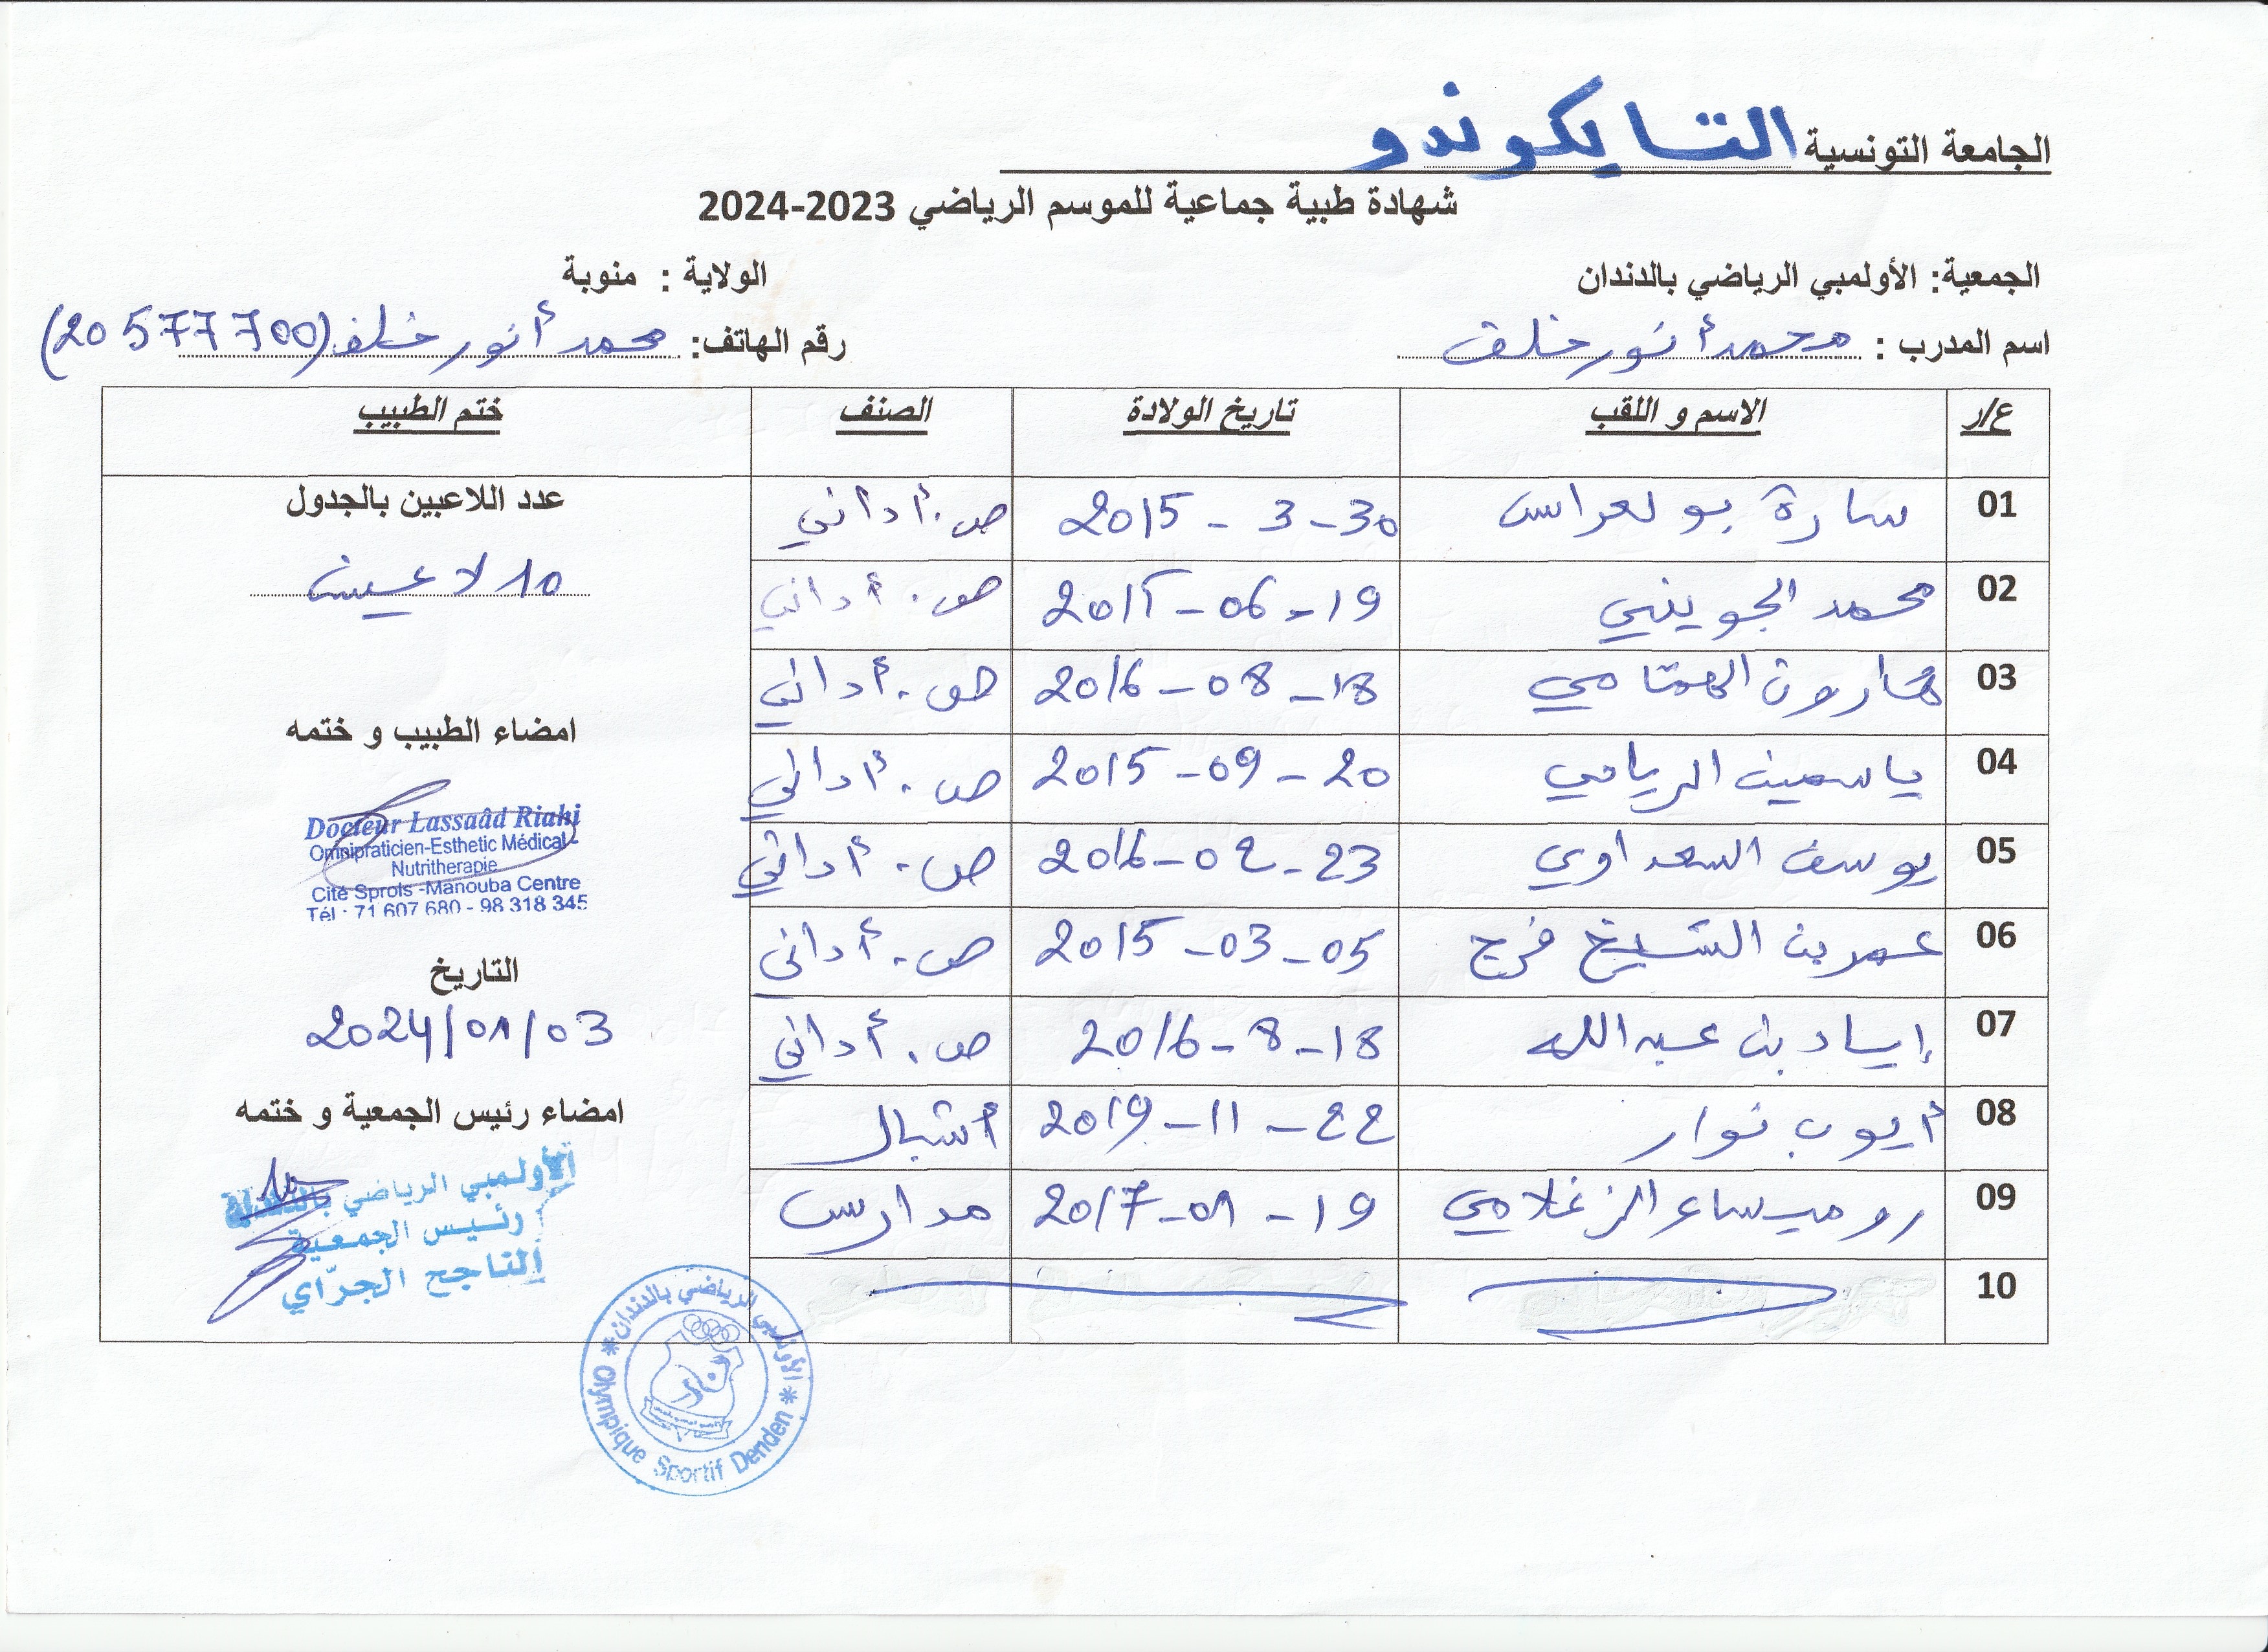 الجامعة التونسية التايكوندو
شهادة طبية جماعية للموسم الرياضي 2023-2024
الجمعية: الأولمبي الرياضي بالدندان الولاية : منوبة
اسم المدرب : محمد أنور خلف رقم الهاتف: محمد أنور خلف (20 577 700)
ع/ر الاسم و اللقب تاريخ الولادة الصنف ختم الطبيب
01 سارة بولعراس 30-3-2015 ص.أداني
02 محمد الجويني 19-06-2015 ص.أداني
03 هارون الهمامي 18-08-2016 ص.أداني
04 ياسمين الرياحي 20-09-2015 ص.أداني
05 يوسف السعداوي 23-02-2016 ص.أداني
06 عمر بن الشيخ فرج 05-03-2015 ص.أداني
07 إياد بن عبد الله 18-8-2016 ص.أداني
08 أيوب نوار 22-11-2019 أشبال
09 روميساء الزغلامي 19-01-2017 مدارس
10
عدد اللاعبين بالجدول
10 لاعبين
امضاء الطبيب و ختمه
Docteur Lassaâd Riahi
Omnipraticien-Esthetic Médical -
Nutritherapie
Cité Sprols -Manouba Centre
Tél : 71 607 680 - 98 318 345
التاريخ
2024/01/03
امضاء رئيس الجمعية و ختمه
الأولمبي الرياضي
رئيس الجمعية
الناجح الجرّاي
الأولمبي الرياضي بالدندان
Olympique Sportif Denden